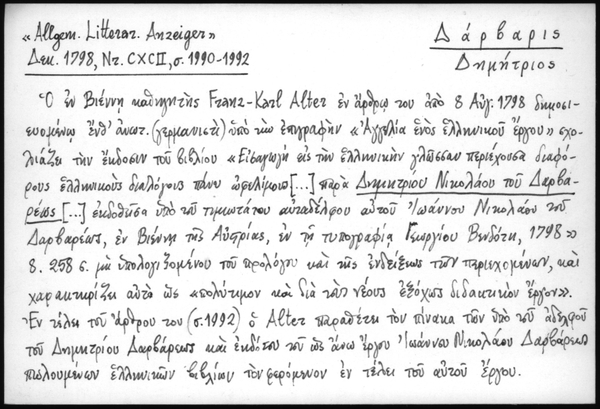 «Allgem. Litterar. Anzeiger»
Δεκ. 1798, Nr. CXCII, σ. 1990-1992
Δάρβαρις
Δημήτριος
Ὁ ἐν Βιέννῃ καθηγητὴς Franz-Karl Alter ἐν ἄρθρῳ του ἀπὸ 8 Αὐγ. 1798 δημοσι-
ευομένῳ ἔνθ' ἀνωτ. (γερμανιστὶ) ὑπὸ τὴν ἐπιγραφὴν «Ἀγγελία ἑνὸς ἑλληνικοῦ ἔργου» σχο-
λιάζει τὴν ἔκδοσιν τοῦ βιβλίου «Εἰσαγωγὴ εἰς τὴν ἑλληνικὴν γλῶσσαν περιέχουσα διαφό-
ρους ἑλληνικοὺς διαλόγους πάνυ ὠφελίμους [...] παρὰ Δημητρίου Νικολάου τοῦ Δαρβα-
ρέως [...] ἐκδοθεῖσα ὑπὸ τοῦ τιμιωτάτου αὐταδέλφου αὐτοῦ Ἰωάννου Νικολάου τοῦ
Δαρβαρέως, ἐν Βιέννῃ τῆς Αὐστρίας, ἐν τῇ τυπογραφίᾳ Γεωργίου Βενδότη, 1798»
8. 258 σ. μὴ ὑπολογιζομένου τοῦ προλόγου καὶ τῆς ἐνδείξεως τῶν περιεχομένων, καὶ
χαρακτηρίζει αὐτὸ ὡς «πολύτιμον καὶ διὰ τοὺς νέους ἐξόχως διδακτικὸν ἔργον».
Ἐν τέλει τοῦ ἄρθρου του (σ. 1992) ὁ Alter παραθέτει τὸν πίνακα τῶν ὑπὸ τοῦ ἀδελφοῦ
τοῦ Δημητρίου Δαρβάρεως καὶ ἐκδότου τοῦ ὡς ἄνω ἔργου Ἰωάννου Νικολάου Δαρβάρεως
πωλουμένων ἑλληνικῶν βιβλίων τὸν φερόμενον ἐν τέλει τοῦ αὐτοῦ ἔργου.